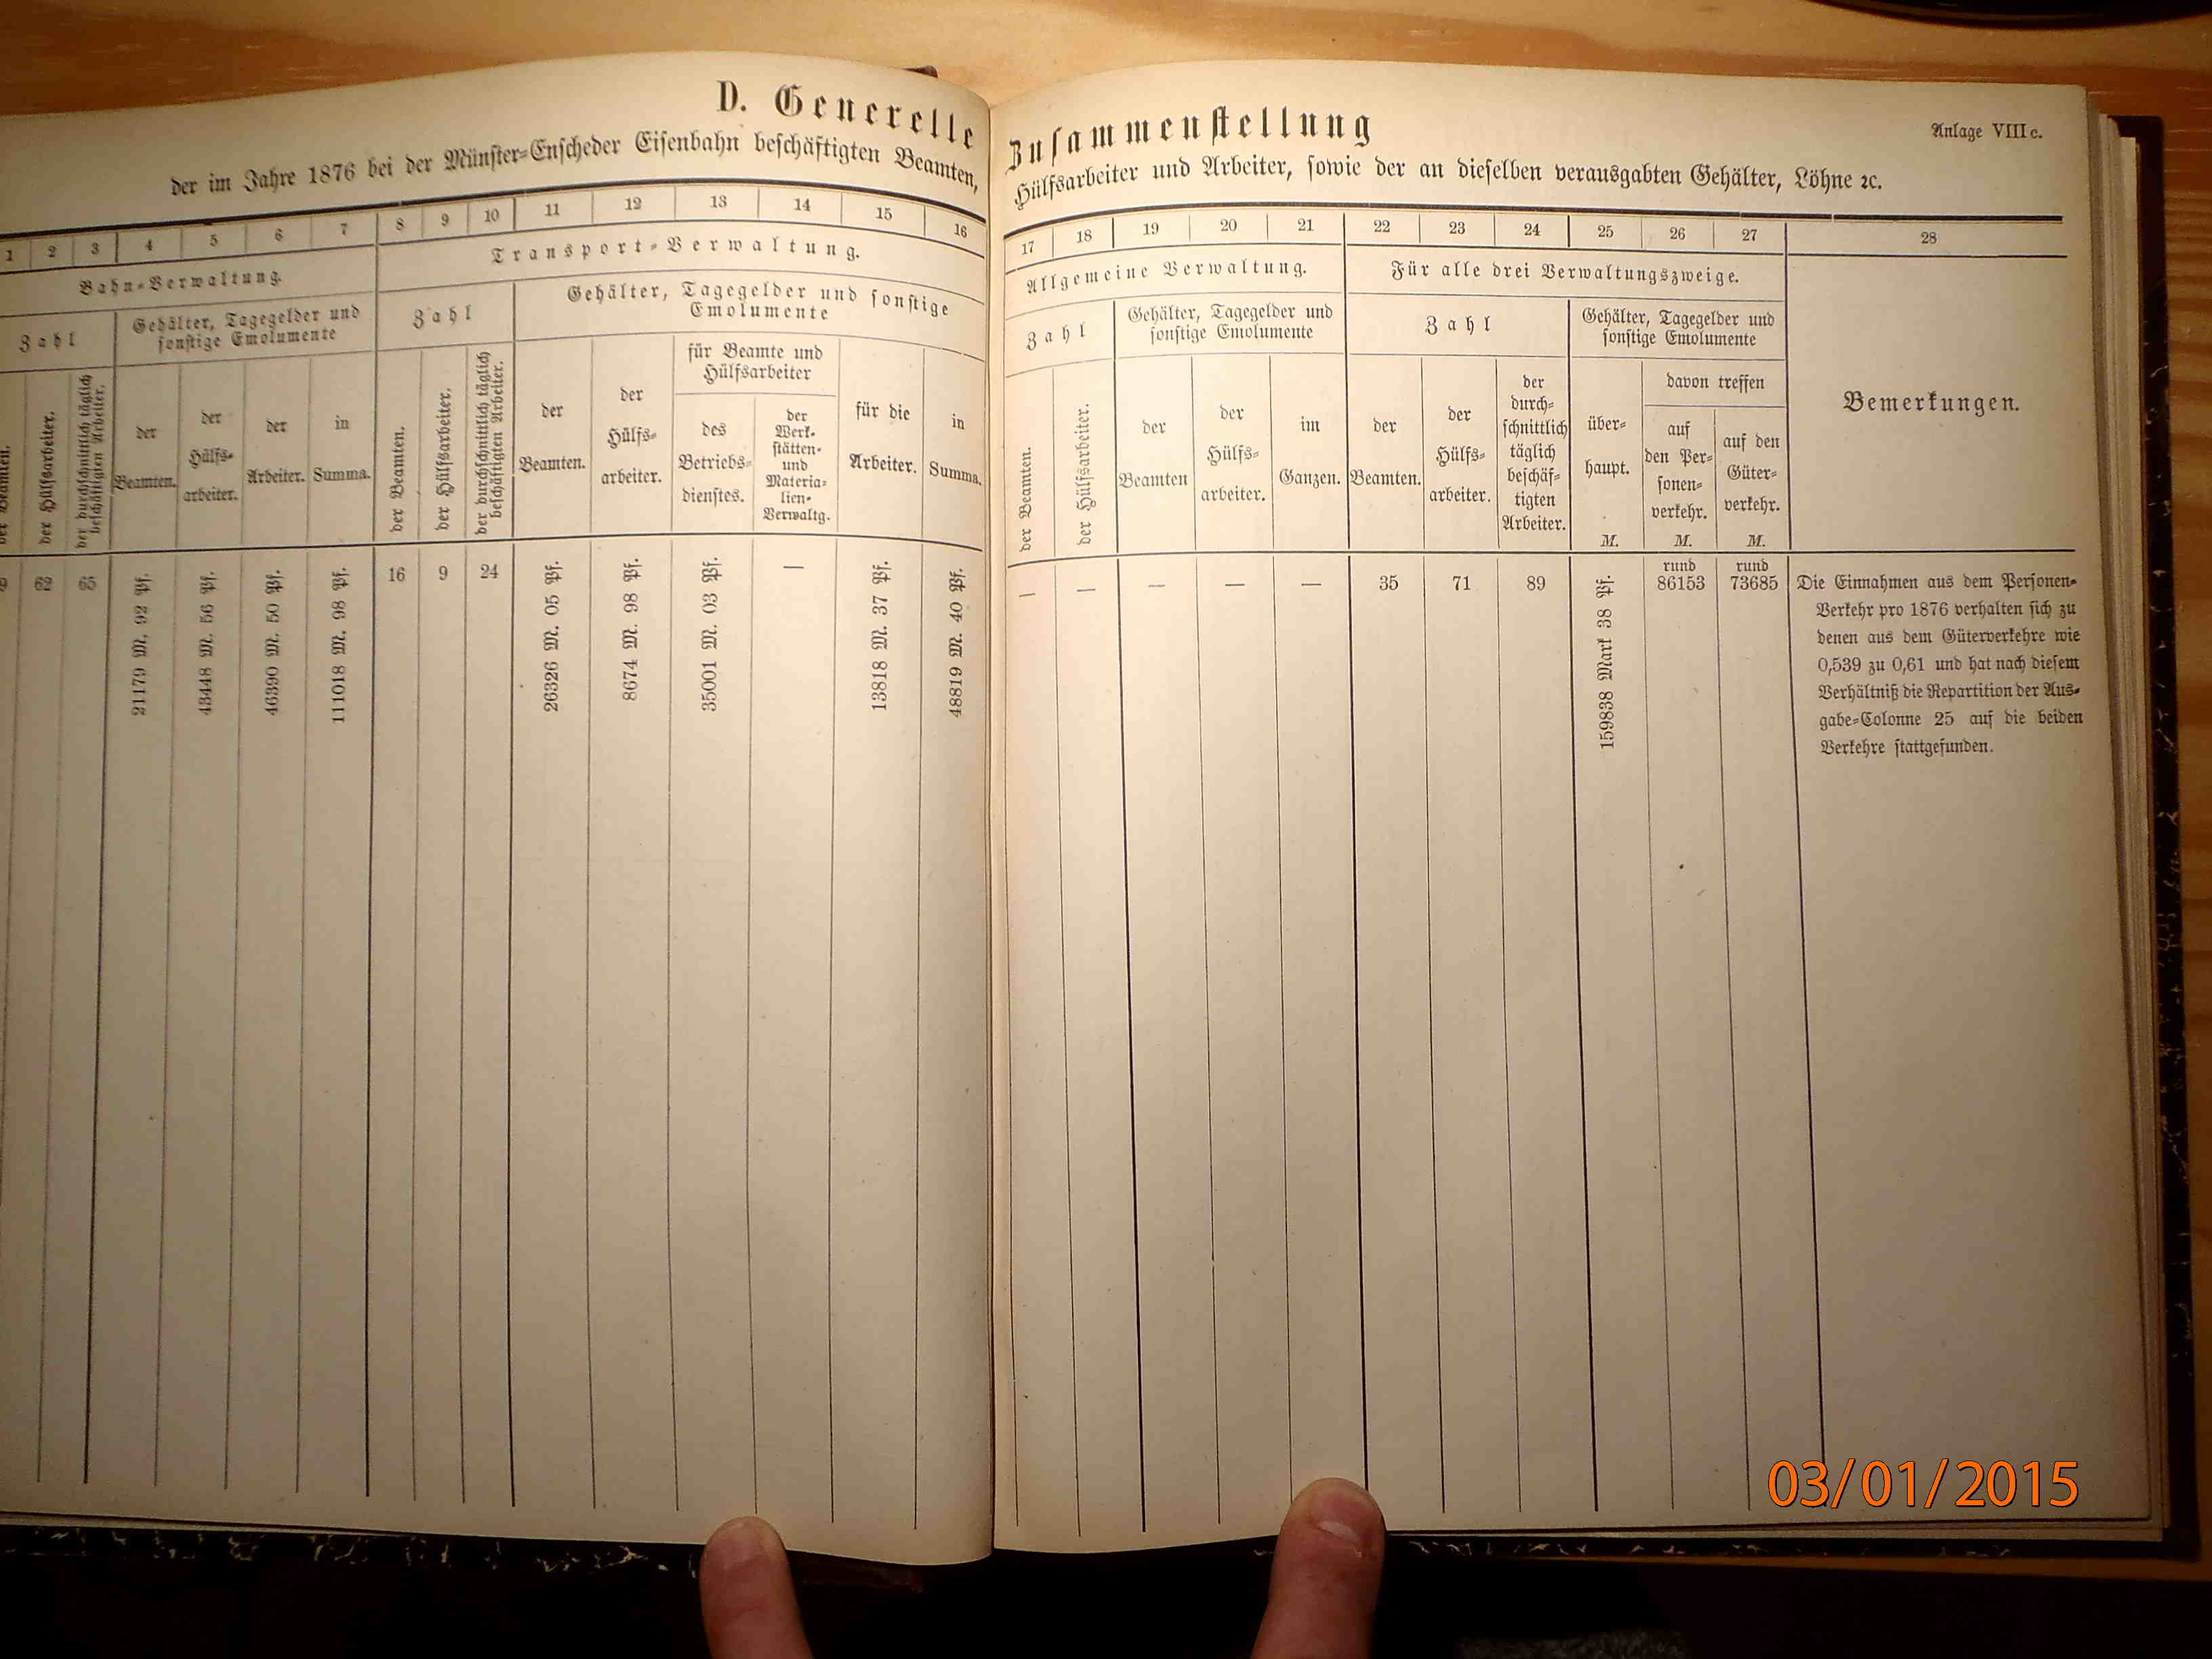 D. Generelle Zusammenstellung
Anlage VIII c.
der im Jahre 1876 bei der Münster-Enscheder Eisenbahn beschäftigten Beamten, Hülfsarbeiter und Arbeiter, sowie der an dieselben verausgabten Gehälter, Löhne ꝛc.
1 2 3 4 5 6 7 8 9 10 11 12 13 14 15 16 17 18 19 20 21 22 23 24 25 26 27 28
Bahn-Verwaltung.
Zahl
Gehälter, Tagegelder und
sonstige Emolumente
der Beamten.
der Hülfsarbeiter.
der durchschnittlich täglich
beschäftigten Arbeiter.
der
Beamten.
der
Hülfs-
arbeiter.
der
Arbeiter.
in
Summa.
Transport-Verwaltung.
Zahl
Gehälter, Tagegelder und sonstige
Emolumente
der Beamten.
der Hülfsarbeiter.
der durchschnittlich täglich
beschäftigten Arbeiter.
der
Beamten.
der
Hülfs-
arbeiter.
für Beamte und
Hülfsarbeiter
des
Betriebs-
dienstes.
der
Werk-
stätten-
und
Materia-
lien-
Verwaltg.
für die
Arbeiter.
in
Summa.
Allgemeine Verwaltung.
Zahl
Gehälter, Tagegelder und
sonstige Emolumente
der Beamten.
der Hülfsarbeiter.
der
Beamten
der
Hülfs-
arbeiter.
im
Ganzen.
Für alle drei Verwaltungszweige.
Zahl
Gehälter, Tagegelder und
sonstige Emolumente
der
Beamten.
der
Hülfs-
arbeiter.
der
durch-
schnittlich
täglich
beschäf-
tigten
Arbeiter.
über-
haupt.
M.
davon treffen
auf
den Per-
sonen-
verkehr.
M.
auf den
Güter-
verkehr.
M.
Bemerkungen.
9 62 65
21179 M. 92 Pf.
43448 M. 56 Pf.
46390 M. 50 Pf.
111018 M. 98 Pf.
16 9 24
26326 M. 05 Pf.
8674 M. 98 Pf.
35001 M. 03 Pf.
—
13818 M. 37 Pf.
48819 M. 40 Pf.
— — — — —
35 71 89
159838 Mark 38 Pf.
rund
86153
rund
73685
Die Einnahmen aus dem Personen-
Verkehr pro 1876 verhalten sich zu
denen aus dem Güterverkehre wie
0,539 zu 0,61 und hat nach diesem
Verhältniß die Repartition der Aus-
gabe-Colonne 25 auf die beiden
Verkehre stattgefunden.
03/01/2015